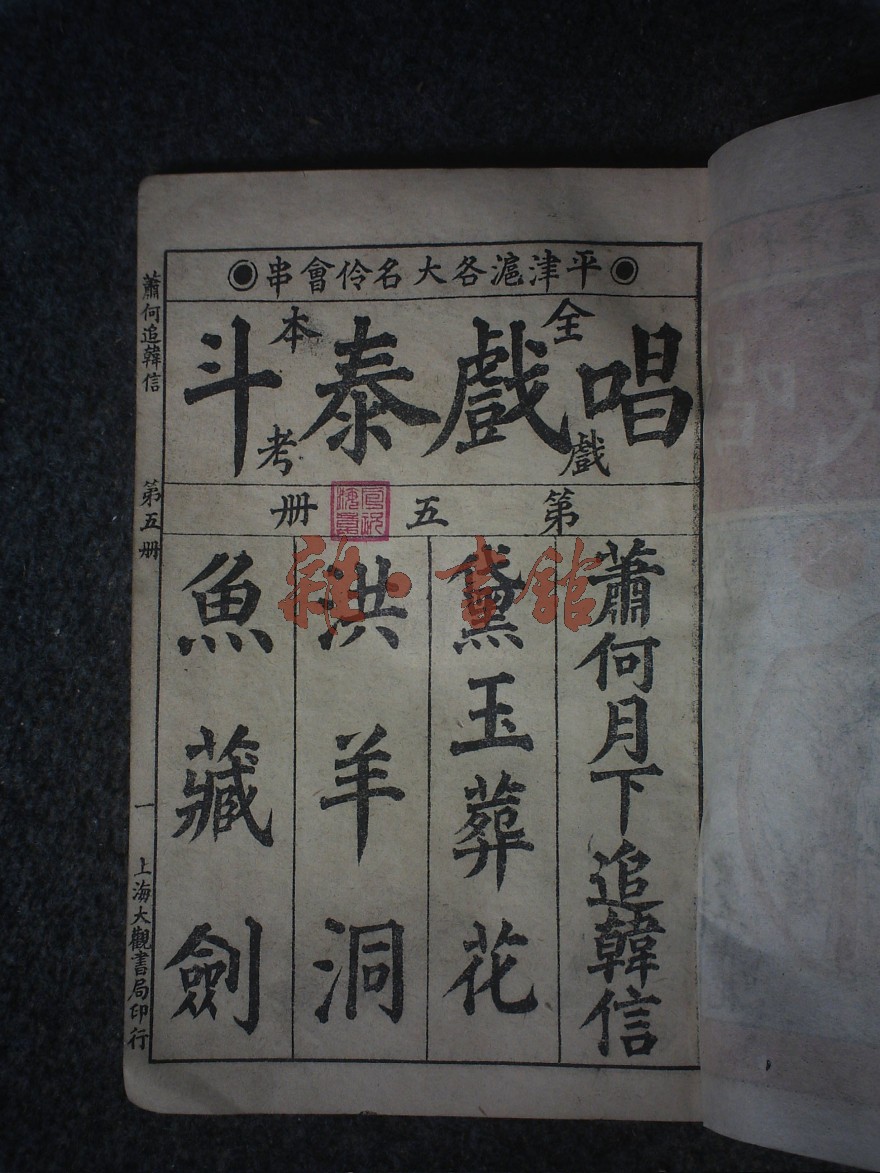 平津滬各大名伶會串
唱戲泰斗
全本戲考
第五册
蕭何月下追韓信
黛玉葬花
洪羊洞
魚藏劍
蕭何追韓信
第五册
一
上海大觀書局印行
雜書館